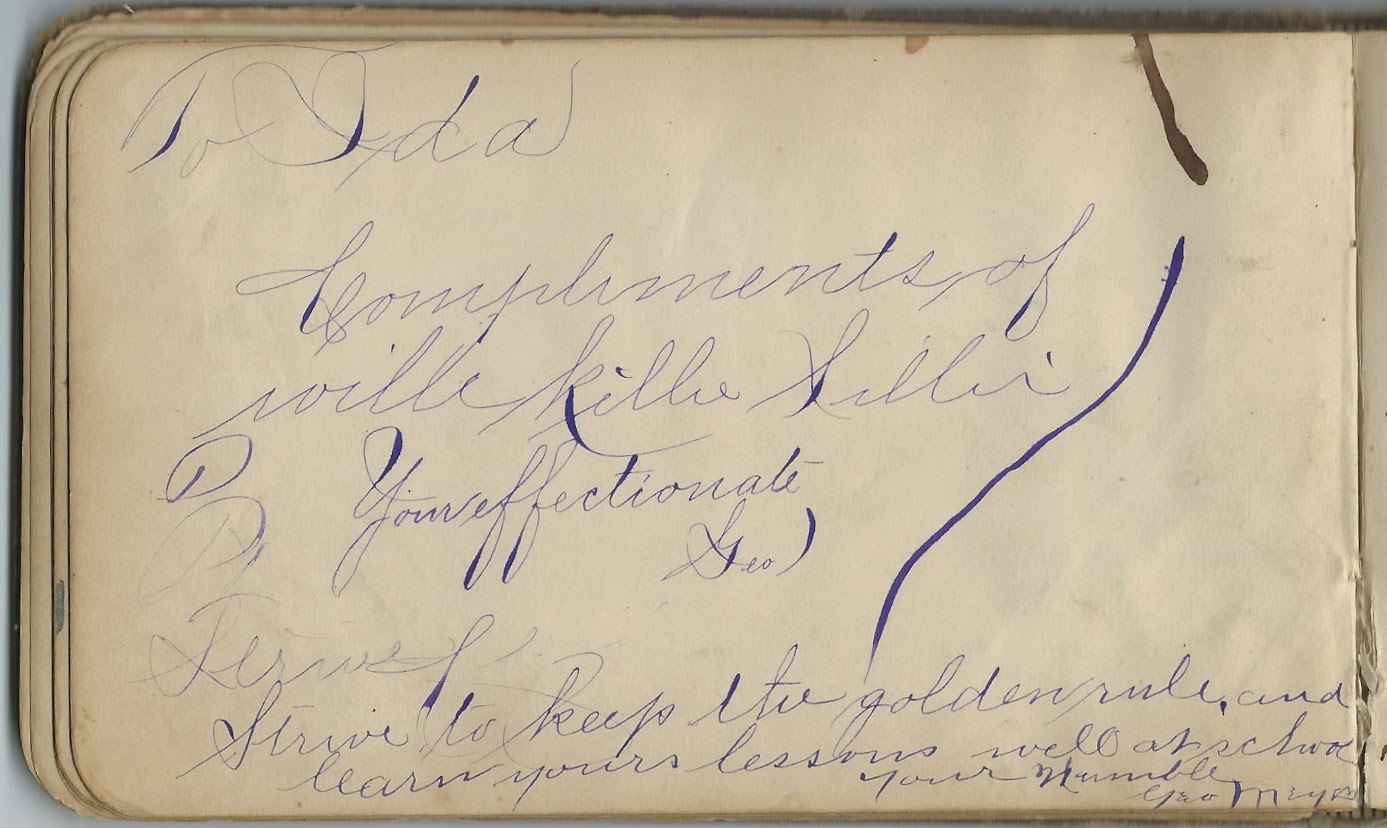 To Ida
Compliments of
wille killie Sillie
Your effectionate
Geo
Strive to keep the golden rule, and
learn yours lessons well at school
your Humble
Geo Meyers